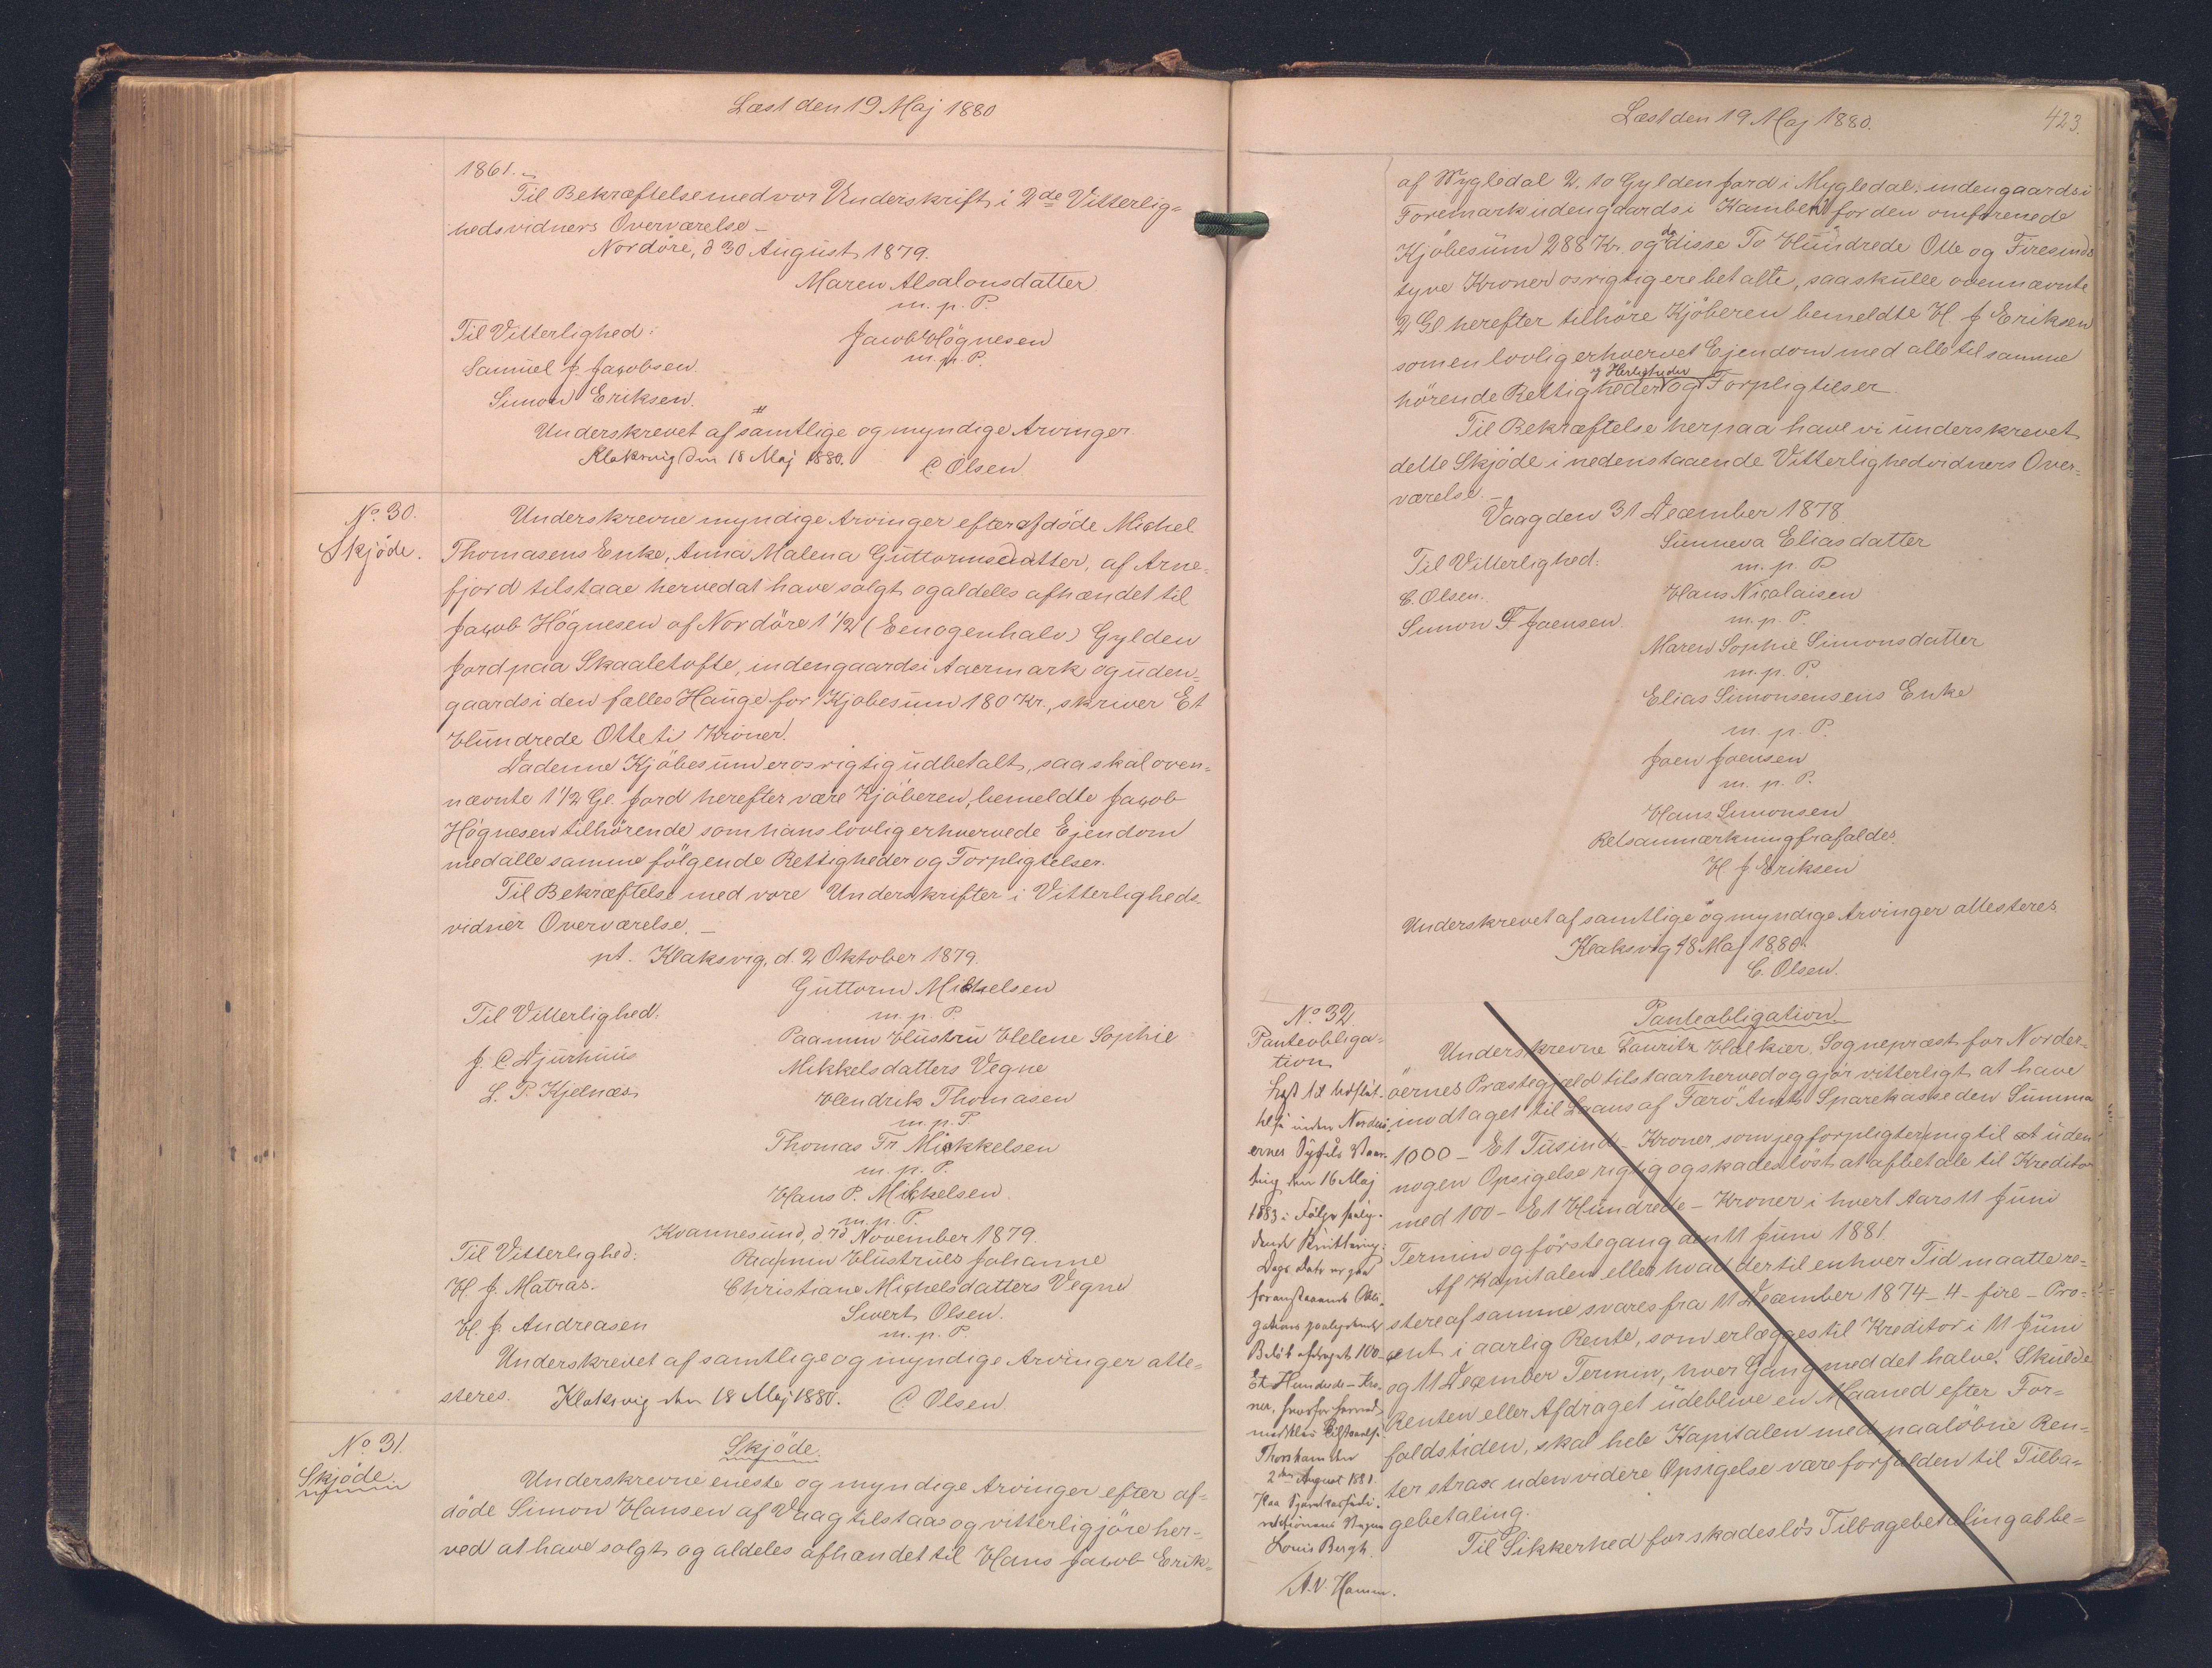 Læst den 19 Maj 1880
1861.
Til Bekræftelse med vor Underskrift i 2de Vitterlig=
hedsvidners Overværelse –
Nordöre, d 30 August 1879.
Maren Absalonsdatter
m. p. P.
Til Vitterlighed:
Jacob Högnesen
m. p. P.
Samuel J. Jacobsen.
Simon Eriksen.
Underskrevet af samtlige og myndige Arvinger
Klaksvig den 18 Maj 1880. C. Olsen
No. 30.
Skjöde.
Underskrevne myndige Arvinger efter afdöde Michel
Thomasens Enke, Anna Malena Guttormsdatter, af Arne=
fjord tilstaae herved at have solgt og aldeles afhændet til
Jacob Högnesen af Nordöre 1 1/2 (Eenogenhalv) Gylden
Jord paa Skaaletofte, indengaards i Aaermark og uden=
gaards i den fælles Hauge for Kjöbesum 180 Kr., skriver Et
Hundrede Otteti Kroner.
Da denne Kjöbesum er os rigtig udbetalt, saa skal oven=
nævnte 1 1/2 Gl. Jord herefter være Kjöberen, bemeldte Jacob
Högnesen tilhörende som hans lovlig erhvervede Ejendom
med alle samme fölgende Rettigheder og Forpligtelser.
Til Bekræftelse med vore Underskrifter i Vitterligheds-
vidner Overværelse. –
pt. Klaksvig, d. 2 Oktober 1879.
Guttorm Mikkelsen
m. p. P.
Til Vitterlighed.
Paa min Hustru Helene Sophie
J. C. Djurhuus
Mikkelsdatters Vegne
L. P. Kjelnæs
Hendrik Thomasen
m. p. P.
Thomas Fr. Mikkelsen
m. p. P.
Hans P. Mikkelsen.
m. p. P.
Kvannesund, d 7d November 1879.
Til Vitterlighed:
Paa min Hustrues Johanne
H J. Matras.
Christiane Michelsdatters Vegne
Sivert Olsen.
H. J. Andreasen
m. p. P
Underskrevet af samtlige og myndige Arvinger atte=
steres. Klaksvig den 18 Maj 1880. C. Olsen.
No. 31.
Skjöde.
Skjöde.
Underskrevne eneste og myndige Arvinger efter af=
döde Simon Hansen af Vaag tilstaae og vitterligjöre her=
ved at have solgt og aldeles afhændet til Hans Jacob Erik=
Læst den 19 Maj 1880.
423.
af Mygledal 2. to Gylden Jord i Mygledal. indengaards i
Foremark udengaards i Kamben for den omforenede
Kjöbesum 288 Kr. og da disse To Hundrede Otte og Firesinds
tyve Kroner os rigtig ere betalte, saa skulle ovennævnte
2 Gl herefter tilhöre Kjöberen bemeldte H. J Eriksen
som en lovlig erhvervet Ejendom med alle til samme
og Herligheder
hörende Rettigheder og Forpligtelser.
Til Bekræftelse herpaa have vi underskrevet
dette Skjöde i nedenstaaende Vitterlighedvidners Over=
værelse. –
Vaag den 31 December 1878
Sunneva Eliasdatter
Til Vitterlighed:
m. p. P
C. Olsen.
Hans Nicolaisen
Simon F Joensen.
m. p. P.
Maren Sophie Simonsdatter
m. p. P.
Elias Simonsensens Enke
m. p. P.
Joen Joensen
m. p. P.
Hans Simonsen
Retsanmærkning frafaldes.
H J Eriksen
Underskrevet af samtlige og myndige Arvinger attesteres
Klaksvig 18 Maj 1880.
C. Olsen.
No. 32
Panteobliga=
tion
Panteobligation
Underskrevne Lauritz Halkier, Sognepræst for Norder=
öernes Præstegjæld tilstaar herved og gjör vitterligt at have
modtaget til Laans af Færö Amts Sparekasse den Summa
1000 – Et Tusind – Kroner, som jeg forpligter mig til at uden
nogen Opsigelse rigtig og skadeslöst at afbetale til Kreditor
med 100 – Et Hundrede – Kroner i hvert Aars 11 Juni
Termin og förstegang den 11 Juni 1881.
Af Kapitalen eller hvad der til enhver Tid maatte re=
stere af samme svares fra 11 December 1874 – 4 – fire – Pro=
cent i aarlig Rente, som erlægges til Kreditor i 11 Juni
og 11 December Termin, hver Gang med det halve. Skulde
Renten eller Afdraget udeblive en Maaned efter For=
faldstiden, skal hele Kapitalen med paalöbne Ren=
ter strax uden videre Opsigelse være forfalden til Tilba=
gebetaling.
Til Sikkerhed for skadeslös Tilbagebetaling af be=
Læst til Udslet-
telse inden Nordrö-
ernes Syssels Vaar-
ting den 16 Maj
1883 i Fölge paateg-
Dags Dato er paa
foranstaaende Obli-
Belöb afdraget 100
Et Hundrede – Kro-
ner, hvorfor herved
meddeles Tilstaaelse
Thorshavn den
2den August 1881.
Paa Sparekassedi-
rektionens Vegne
Louis Bergh.
A. V. Hamm.